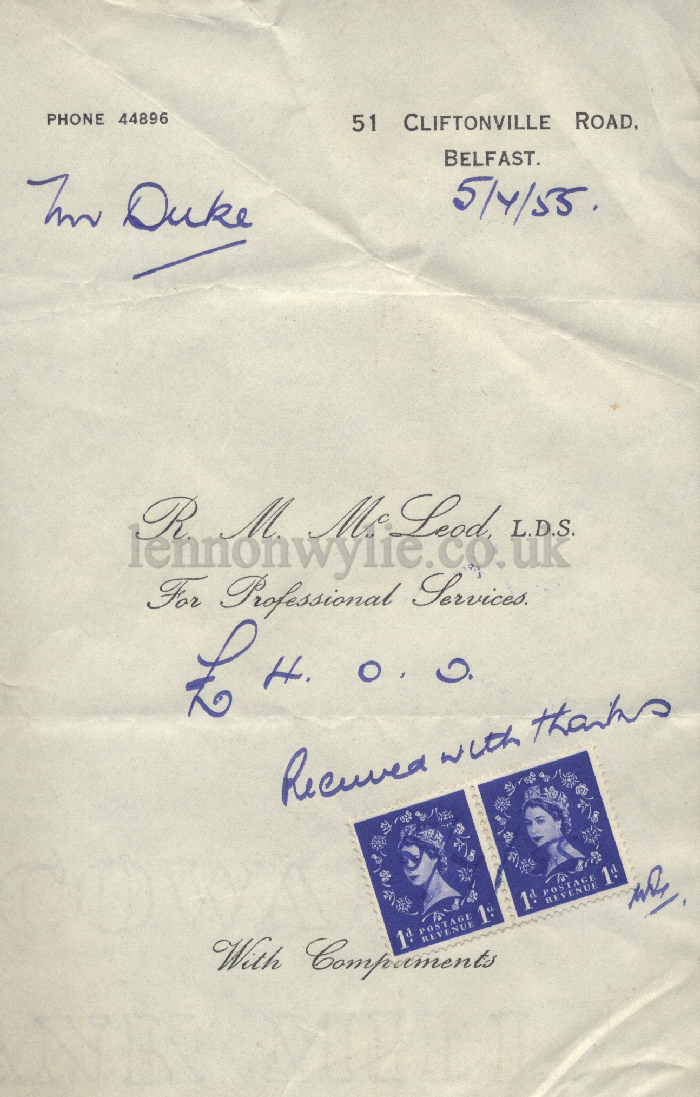 PHONE 44896
51 CLIFTONVILLE ROAD,
BELFAST.
5/4/55.
Mr Duke
R. M. McLeod, L.D.S.
lennonwylie.co.uk
For Professional Services.
£4. 0. 0.
Received with thanks
1d POSTAGE REVENUE 1d
1d POSTAGE REVENUE 1d
With Compliments